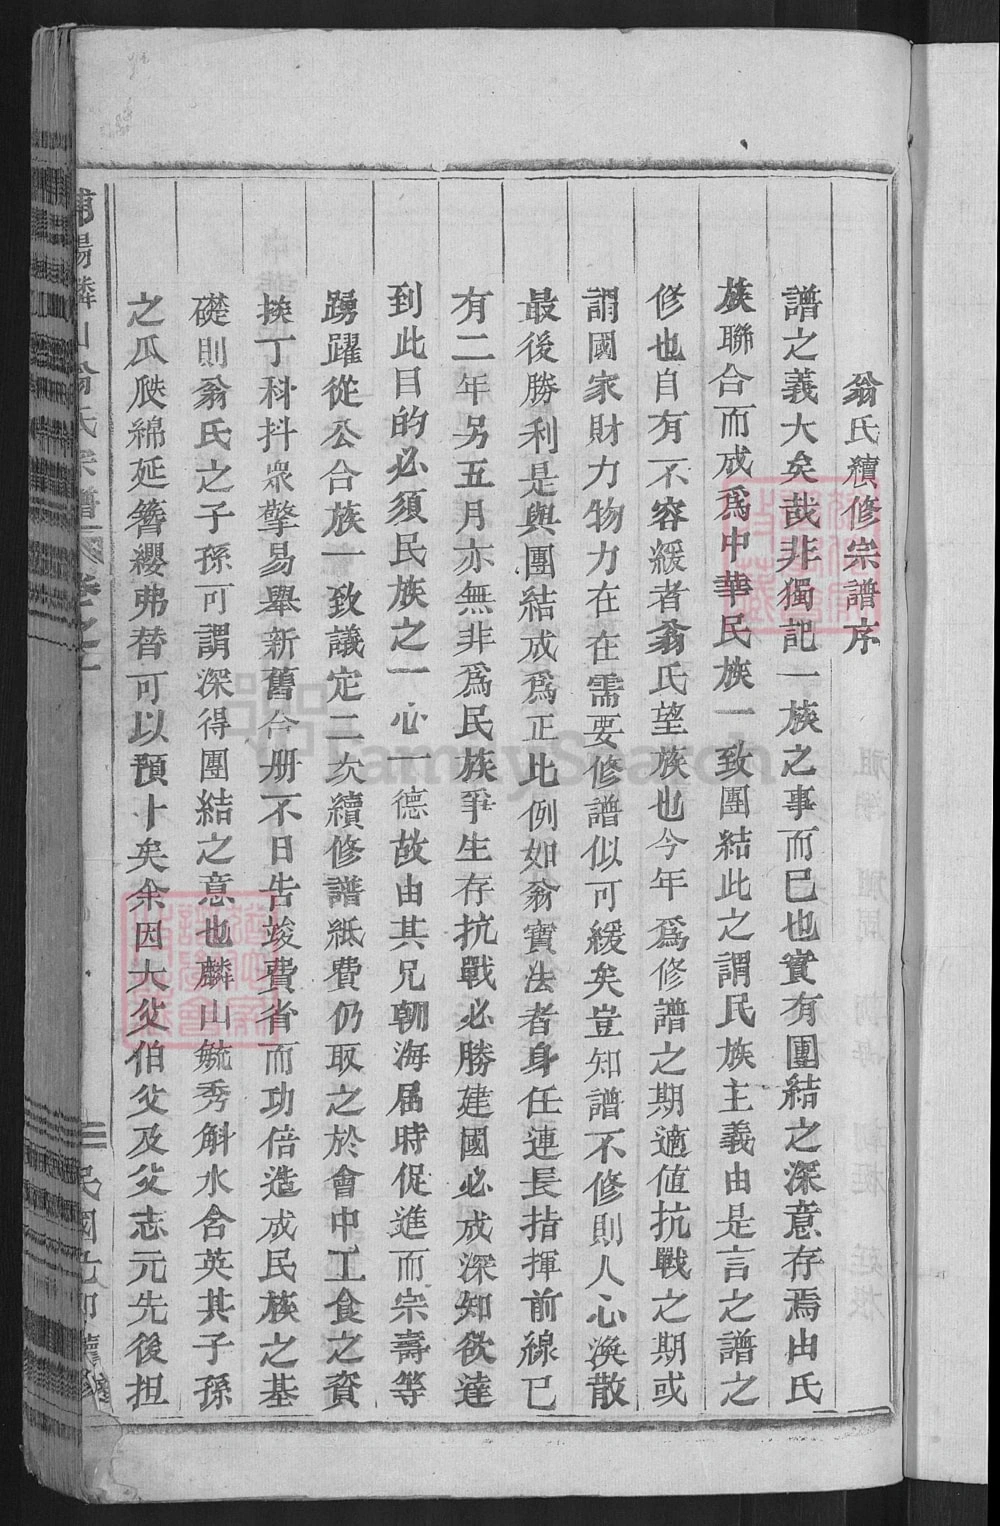 翁氏續修宗譜序
譜之義大矣哉非獨記一族之事而已也實有團結之深意存焉由氏
族聯合而成爲中華民族一致團結此之謂民族主義由是言之譜之
修也自有不容緩者翁氏望族也今年爲修譜之期適值抗戰之期或
謂國家財力物力在在需要修譜似可緩矣豈知譜不修則人心渙散
最後勝利是與團結成爲正比例如翁寶法者身任連長指揮前線已
有二年另五月亦無非爲民族爭生存抗戰必勝建國必成深知欲達
到此目的必須民族之一心一德故由其兄朝海屆時促進而宗壽等
踴躍從公合族一致議定二次續修譜紙費仍取之於會中工食之資
挨丁科抖衆擎易舉新舊合册不日告竣費省而功倍造成民族之基
礎則翁氏之子孫可謂深得團結之意也麟山毓秀斛水含英其子孫
之瓜瓞綿延簪纓弗替可以預卜矣余因大父伯父及父志元先後担
浦陽麟山翁氏宗譜 卷之一 二 民國己卯續修
FamilySearch